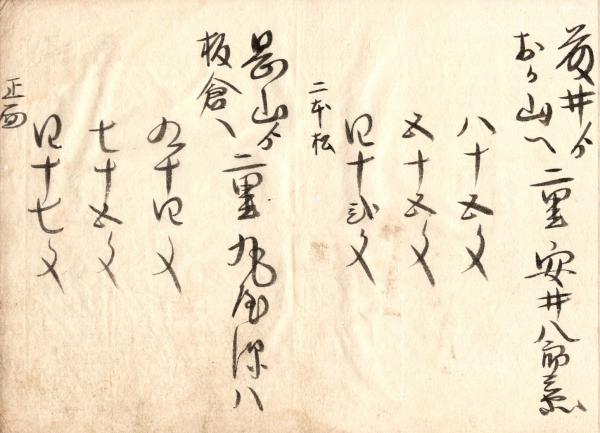 藤井ゟ
おか山へ 二里 安井八郎兵衛
八十五文
五十五文
四十弐文
二本松
岡山ゟ
板倉へ 二里 丸屋源八
九十四文
七十五文
四十七文
正面